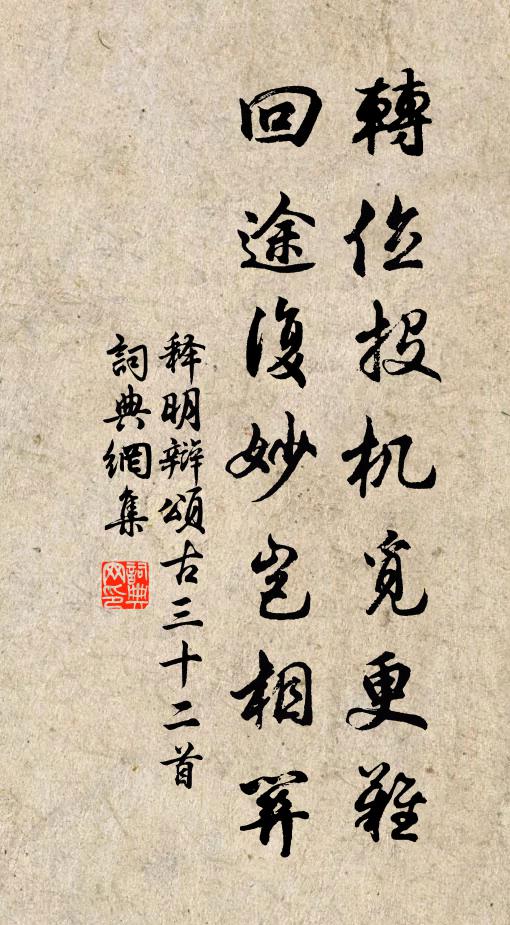 轉位投机覓更難
回途復妙豈相關
释明辯頌古三十二首
詞典網集
詞典网印